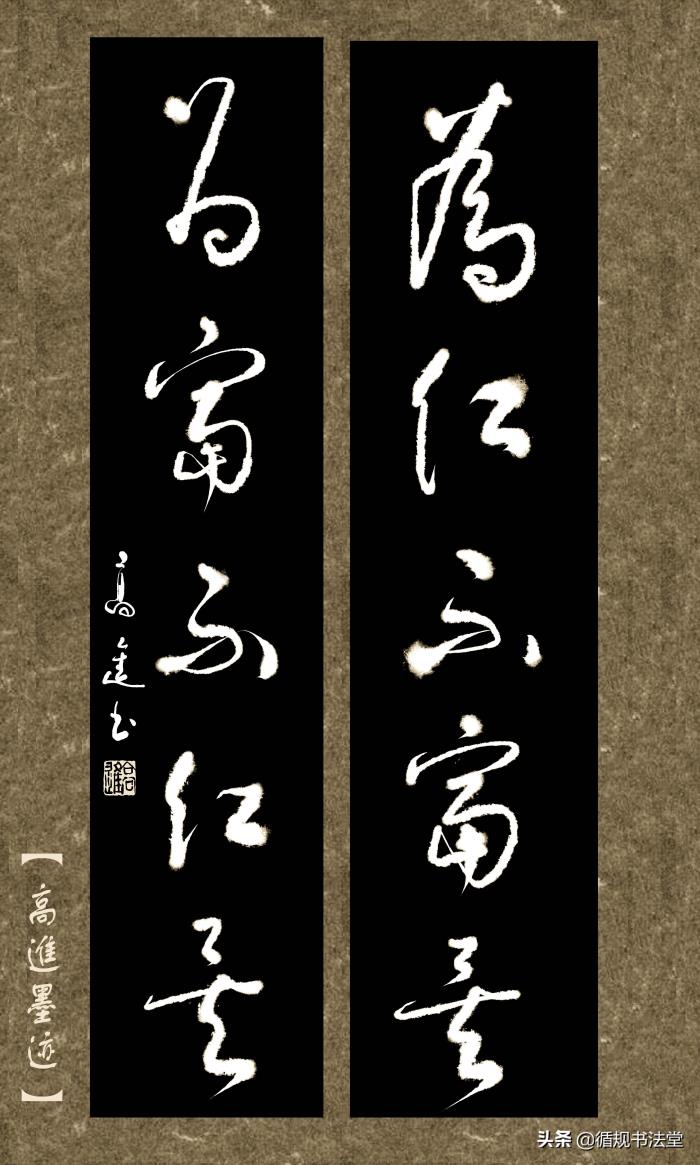 為仁不富矣
為富不仁矣
高進書
【高進墨迹】
头条 @循规书法堂